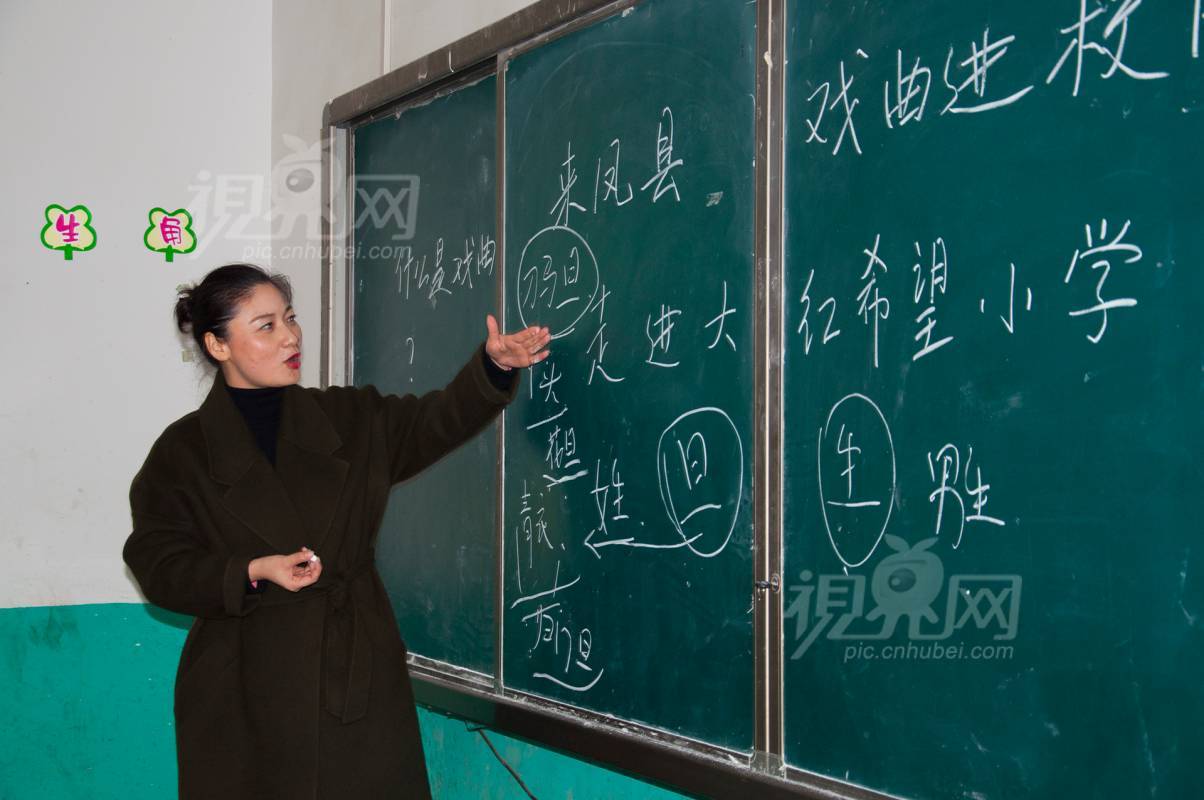 生 角
視界网
pic.cnhubei.com
什么是戏曲
?
来凤县
刀马旦
走进大
花旦
青衣
女生
旦
戏曲进校
红希望小学
生 男生
視界网
pic.cnhubei.com